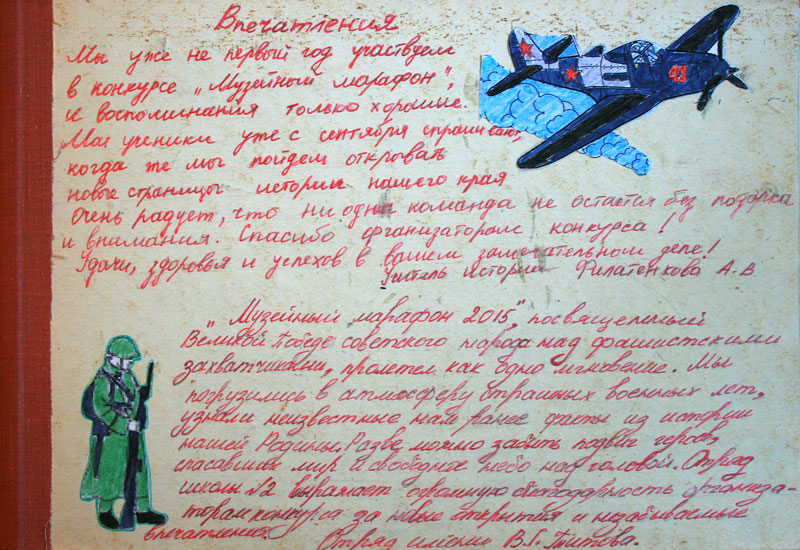 Впечатления
Мы уже не первый год участвуем
в конкурсе „Музейный марафон",
и воспоминания только хорошие.
Мои ученики уже с сентября спрашивают,
когда же мы пойдем открывать
новые страницы истории нашего края
Очень радует, что ни одна команда не остается без подарка
и внимания. Спасибо организаторам конкурса!
Удачи, здоровья и успехов в вашем замечательном деле!
Учитель истории Филатенкова А.В
43
„Музейный марафон 2015", посвященный
Великой Победе советского народа над фашистскими
захватчиками, пролетел как одно мгновение. Мы
погрузились в атмосферу страшных военных лет,
узнали неизвестные нам ранее факты из истории
нашей Родины. Разве можно забыть подвиг героев,
спасавших мир и свободное небо над головой. Отряд
школы №2 выражает огромную благодарность организа-
торам конкурса за новые открытия и незабываемые
впечатления.
Отряд имени В.Г. Титова.